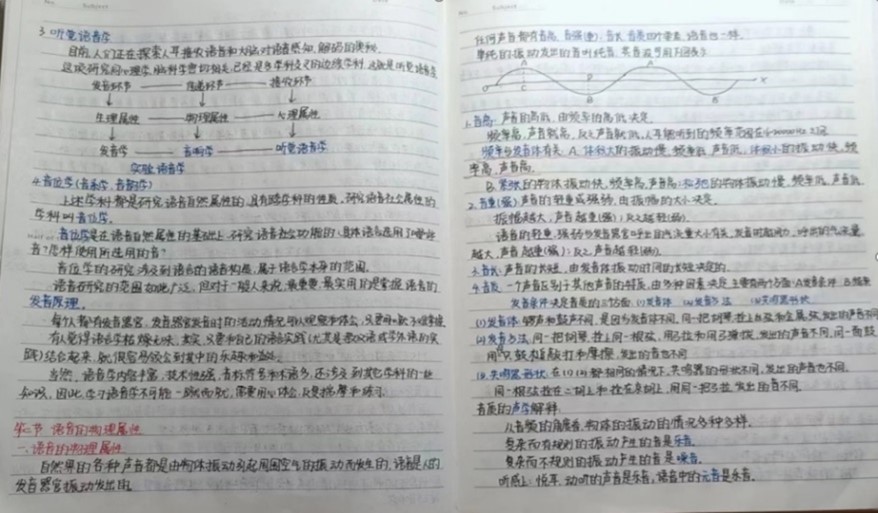 3.听觉语音学
目前,人们正在探索人耳接收语音和大脑对语音感知、解码的奥秘.
这项研究同心理学、脑科学密切相关,已经是多学科交叉的边缘学科.这就是听觉语音学
发音环节 —— 传递环节 —— 接收环节
生理属性 —— 物理属性 —— 心理属性
发音学 —— 音响学 —— 听觉语音学
实验语音学
4.音位学(音系学,音韵学)
上述学科都是研究语音自然属性的,具有跨学科的性质.研究语音社会属性的
学科叫音位学.
音位学是在语音自然属性的基础上,研究语音社会功能的,具体语言选用了哪些
音?怎样使用所选用的音?
音位学的研究涉及到语言的语音构局,属于语言学本身的范围.
语音研究的范围如此广泛,但对于一般人来说,最重要、最实用的是掌握语音的
发音原理.
每个人都有发音器官,发音器官发音时的活动情况可以观察和体会,只要
有人觉得语音学枯燥乏味,其实,只要和自己的语言实践(尤其是教汉语或学外语的实
践)结合起来,就很容易领会到其中的乐趣和益处.
当然,语音学内容丰富,技术性强,音标符号和术语多,还涉及到其它学科的一些
知识,因此,学习语音学不可能一蹴而就,需要用心体会,反复揣摩和练习.
第二节 语音的物理属性
一、语音的物理属性
自然界的各种声音都是由物体振动引起周围空气的振动而发生的,语音是人的
发音器官振动发出的.
任何声音都有音高、音强(重)、音长、音质四个要素,语音也一样.
单纯的振动发出的音叫纯音,其音波可用下图表示
A
O C D X
B B
1.音高:声音的高低,由频率的高低决定.
频率高,声音就高,反之声音就低,人耳能听到的频率范围在 20000Hz之间
频率与发音体有关:A.体积大的振动慢,频率低,声音低,体积小的振动快,频
率高,声音高.
B.紧绷的物体振动快,频率高,声音高;松弛的物体振动慢,频率低,声音低
2.音重(强):声音的轻重或强弱,由振幅的大小决定.
振幅越大,声音越重(强);反之越轻(弱).
语音的轻重、强弱与发音器官呼出的气流量大小有关,发音时越用力,呼出的气流量
越大,声音越重(强);反之,声音越轻(弱).
3.音长:声音的长短,由发音体振动时间的长短决定的.
4.音质:一个声音区别于其他声音的特质,由多种因素决定,主要有两个方面:A.发音条件,B.频率
发音条件决定音质的三个方面:(1)发音体 (2)发音方法 (3)共鸣器形状
(1)发音体:锣声和鼓声不同,是因为发音体不同,同一把胡琴,拴上丝弦和金属弦,发出的声音不同
(2)发音方法:同一把胡琴,拴上同一根弦,用弓拉和用手弹拨,发出的声音不同,同一面鼓
用 敲打和摩擦,发出的音也不同
(3)共鸣器形状:在(1)(2)都相同的情况下,共鸣器的形状不同,发出的声音也不同.
同一根弦拴在二胡上和拴在京胡上,用同一把弓拉,发出的音不同.
音质的声学解释:
从音质的角度看,物体的振动的情况多种多样.
复杂而有规则的振动产生的音是乐音.
复杂而不规则的振动产生的音是噪音.
听感上,悦耳、动听的声音是乐音,语音中的元音是乐音.